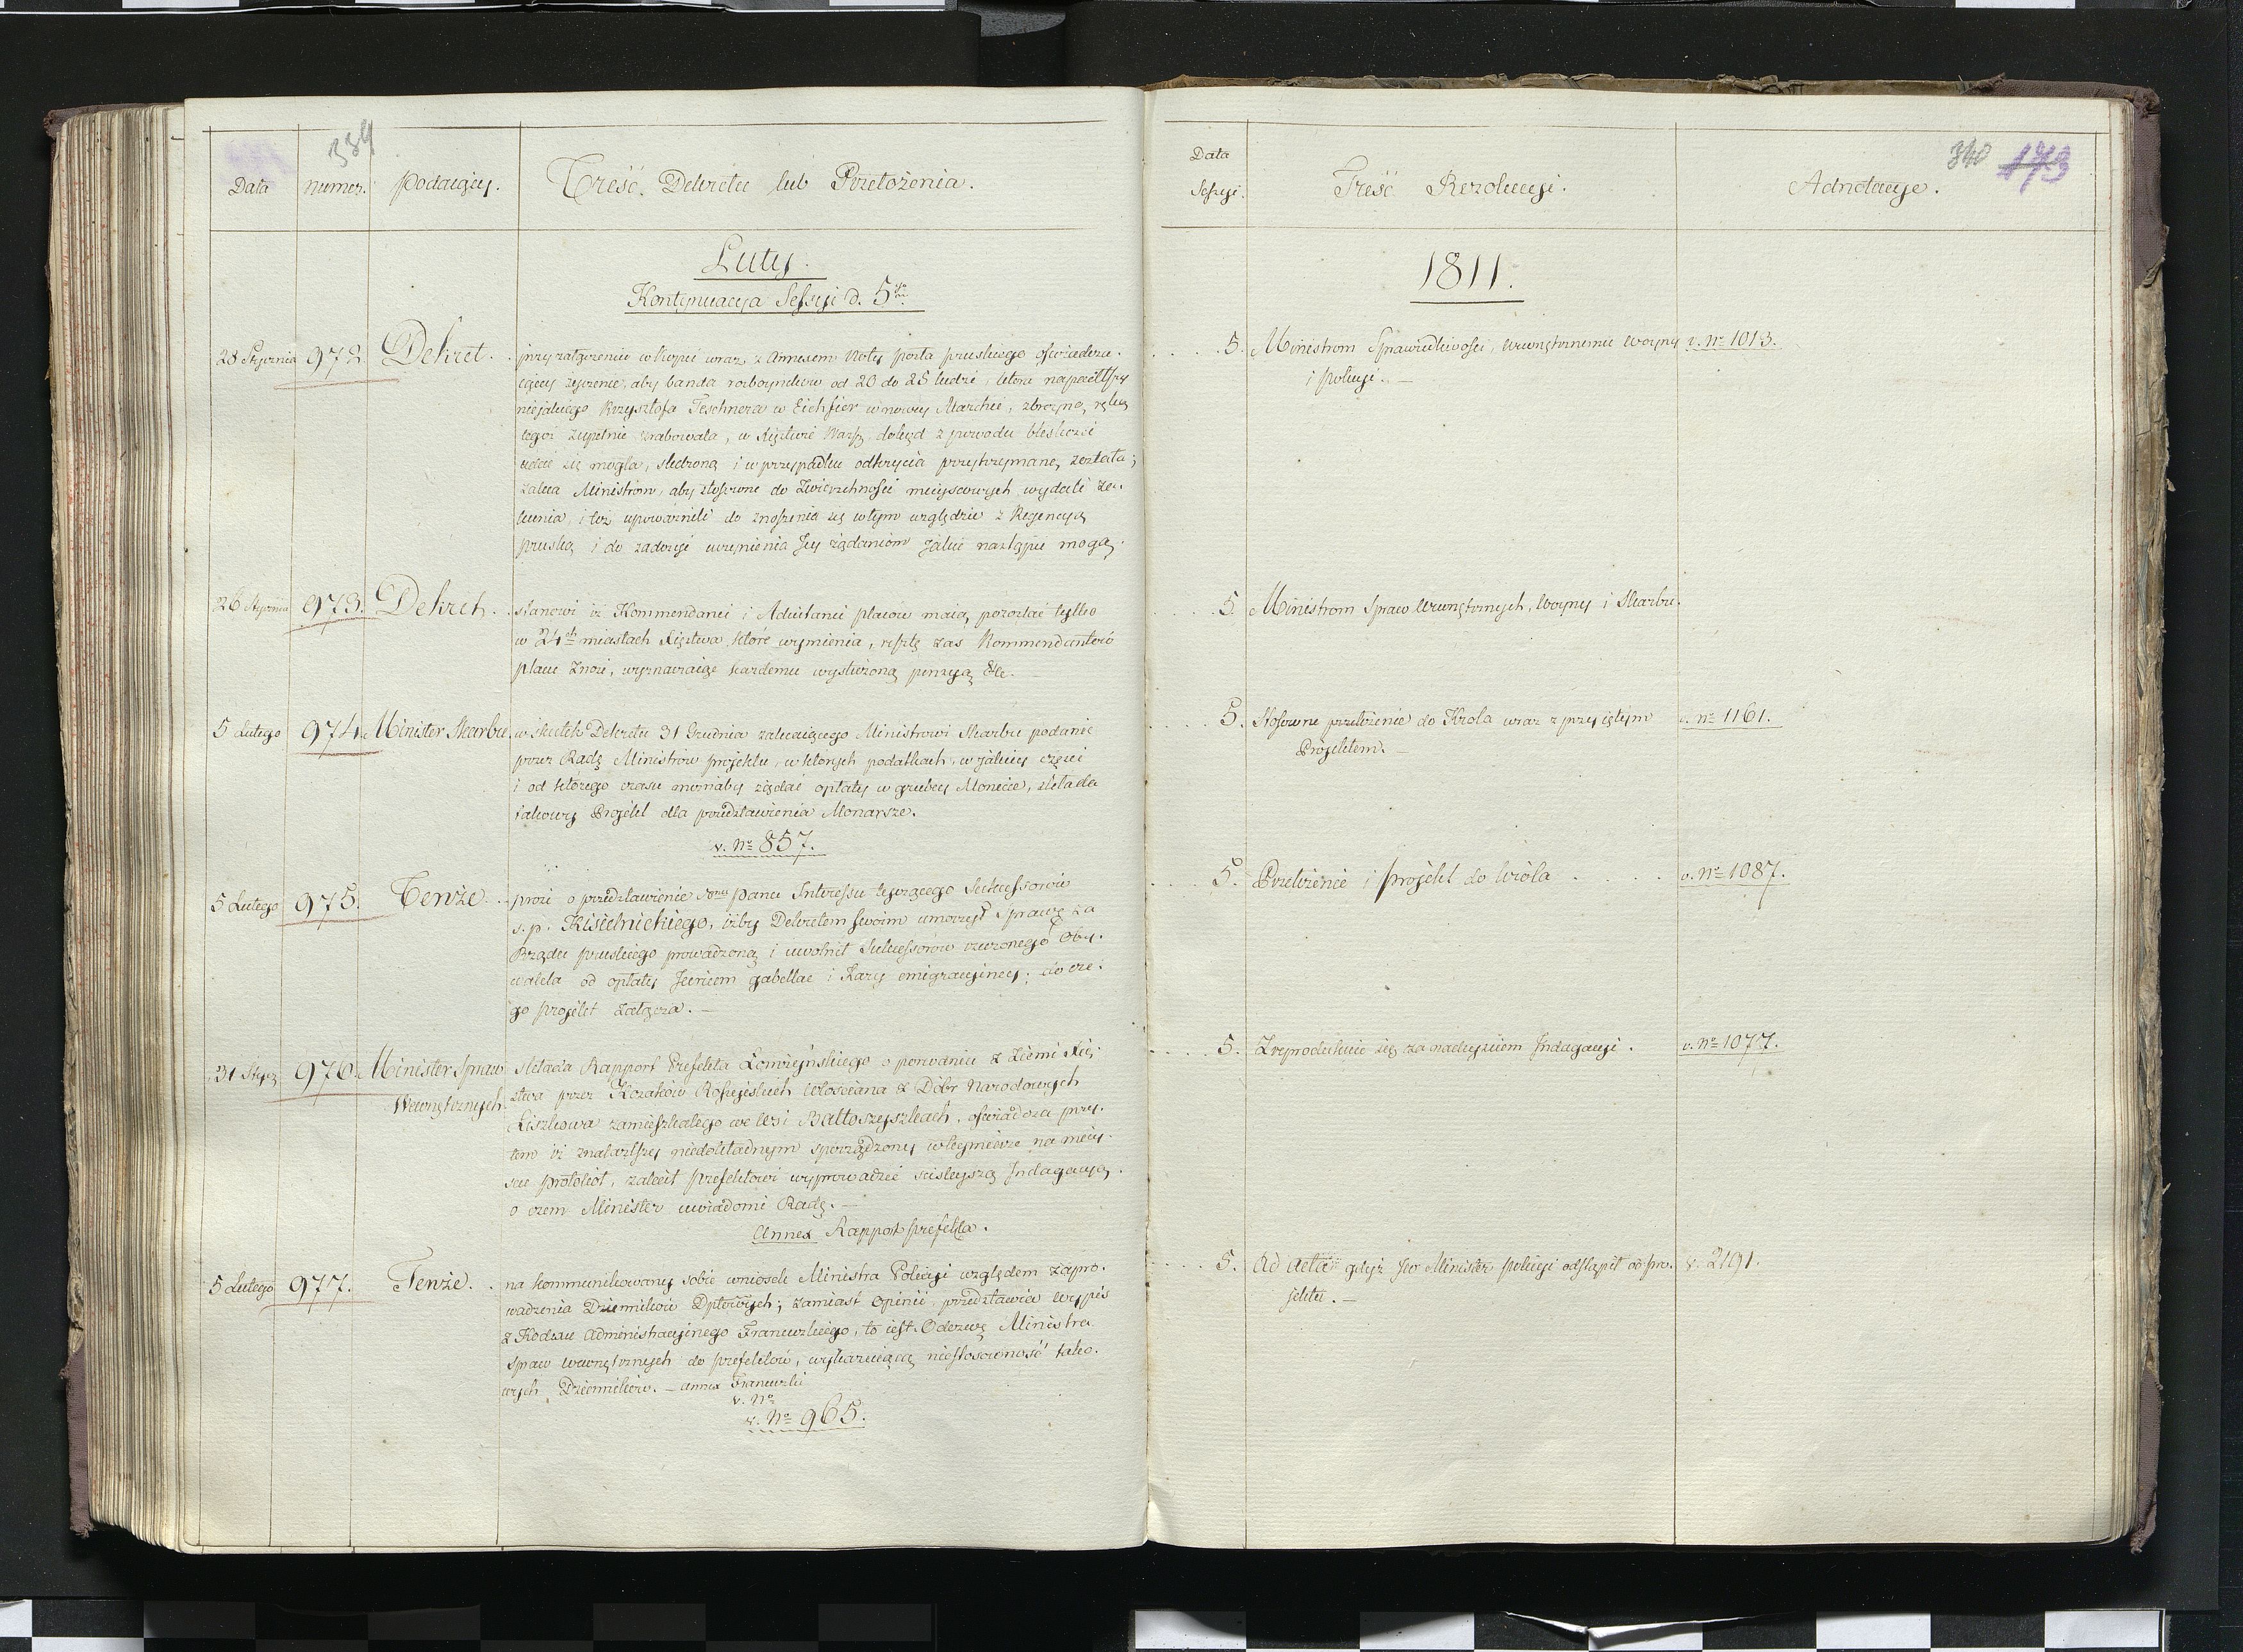 339
Data
numer.
Podaiący.
Treść Dekretu lub Przełożenia.
Luty.
Kontynuacya Sessyi d. 5go
28 Stycznia 972. Dekret.
przy załączeniu w kopii wraz z Annexem Noty posła pruskiego oświadcza-
iącey życzenie, aby banda rozboyników od 20 do 25 ludzi, która napadłszy
niejakiego Krzysztofa Teschnera w Eichfier w nowey Marchii, zbroyną ręką
tegoż zupełnie zrabowała, w Xięstwie Warsz. dokąd z powodu bliskości
udać się mogła, śledzoną i w przypadku odkrycia przytrzymaną została;
zaleca Ministrom, aby stosowne do Zwierzchności mieyscowych wydali zle-
cenia, i też upoważnili do znoszenia się w tym względzie z Regencyą
pruską i do zadosyć uczynienia Jey żądaniom jakie nastąpić mogą.
26 Stycznia 973. Dekret.
stanowi iż Kommendanci i Adiutanci placow maią pozostać tylko
w 24ch miastach Xięstwa, które wymienia, resztę zas Kommendantów
placu znosi, wyznaczaiąc kazdemu wysłużoną pensyą &c.
5 Lutego 974. Minister Skarbu
w skutek Dekretu 31 Grudnia zalecaiącego Ministrowi Skarbu podanie
przez Radę Ministrów projektu, w których podatkach, w jakiey części
i od którego czasu możnaby żądać opłaty w grubey Monecie, składa
takowy Projekt dla przedstawienia Monarsze.
v. No 857.
5 Lutego 975. Tenże.
prosi o przedstawienie Panu Interessu tyczącego Sukcessorów
s. p. Kisielnickiego, iżby Dekretem swoim umorzył Sprawę za
Rządu pruskiego prowadzoną i uwolnił Sukcessorów rzeczonego Oby-
watela od opłaty Jurium gabellae i Kary emigracyiney; do cze-
go projekt załącza.
31 Stycz. 976. Minister Spraw
Wewnętrznych
składa Rapport Prefekta Łomżyńskiego o porwaniu z Ziemi Xię-
stwa przez Kozaków Rossyiskich Włościana z Dóbr Narodowych
Liszkowa zamieszkałego we Wsi Baltoszyszkach, oświadcza przy-
tem iż znalazłszy niedokładnym sporządzony w tey mierze na miey-
scu protokół, zalecił prefektowi wyprowadzić ścisleyszą Indagacyą,
o czem Minister uwiadomi Radę.
Annex Rapport prefekta.
5 Lutego 977. Tenże.
na kommunikowany sobie wniosek Ministra Policyi względem zapro-
wadzenia Dzienników Dptowych; zamiast Opinii, przedstawia Wypis
z Kodexu Administracyinego Francuzkiego, to iest Odezwę Ministra
Spraw wewnętrznych do prefektów, wykazuiącą niestosowność tako-
wych Dzienników. - annex Francuzki
v. No
v. No 965.
340 173
Data
Sessyi.
Treść Rezolucyi.
Adnotacye.
1811.
5. Ministrom Sprawiedliwości, wewnętrznemu woyny v. No 1013.
i policyi.
5. Ministrom Spraw Wewnętrznych, Woyny i Skarbu.
5. Stosowne przełożenie do Króla wraz z przyiętym v. No 1161.
Projektem.
5. Przełożenie i projekt do Króla v. No 1087.
5. Zreprodukuie się za nadeyściem Indagacyi. v. No 1077.
5. Ad acta gdyż JW Minister policyi odstąpił od pro- v. 2191.
jektu.